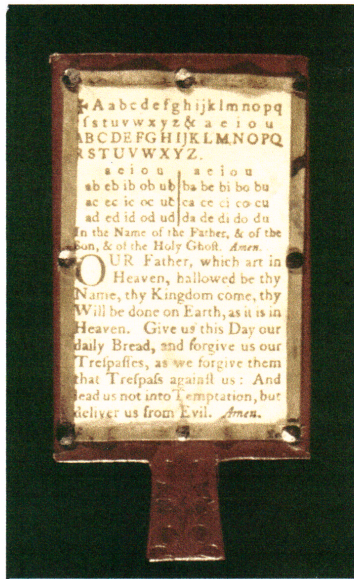 ✠ A a b c d e f g h i j k l m n o p q
r ſ s t u v w x y z & a e i o u
A B C D E F G H I J K L M N O P Q
R S T U V W X Y Z.
a e i o u | a e i o u
ab eb ib ob ub | ba be bi bo bu
ac ec ic oc uc | ca ce ci co cu
ad ed id od ud | da de di do du
In the Name of the Father, & of the
Son, & of the Holy Ghoſt. Amen.
OUR Father, which art in
Heaven, hallowed be thy
Name, thy Kingdom come, thy
Will be done on Earth, as it is in
Heaven. Give us this Day our
daily Bread, and forgive us our
Treſpaſſes, as we forgive them
that Treſpaſs againſt us: And
lead us not into Temptation, but
deliver us from Evil. Amen.